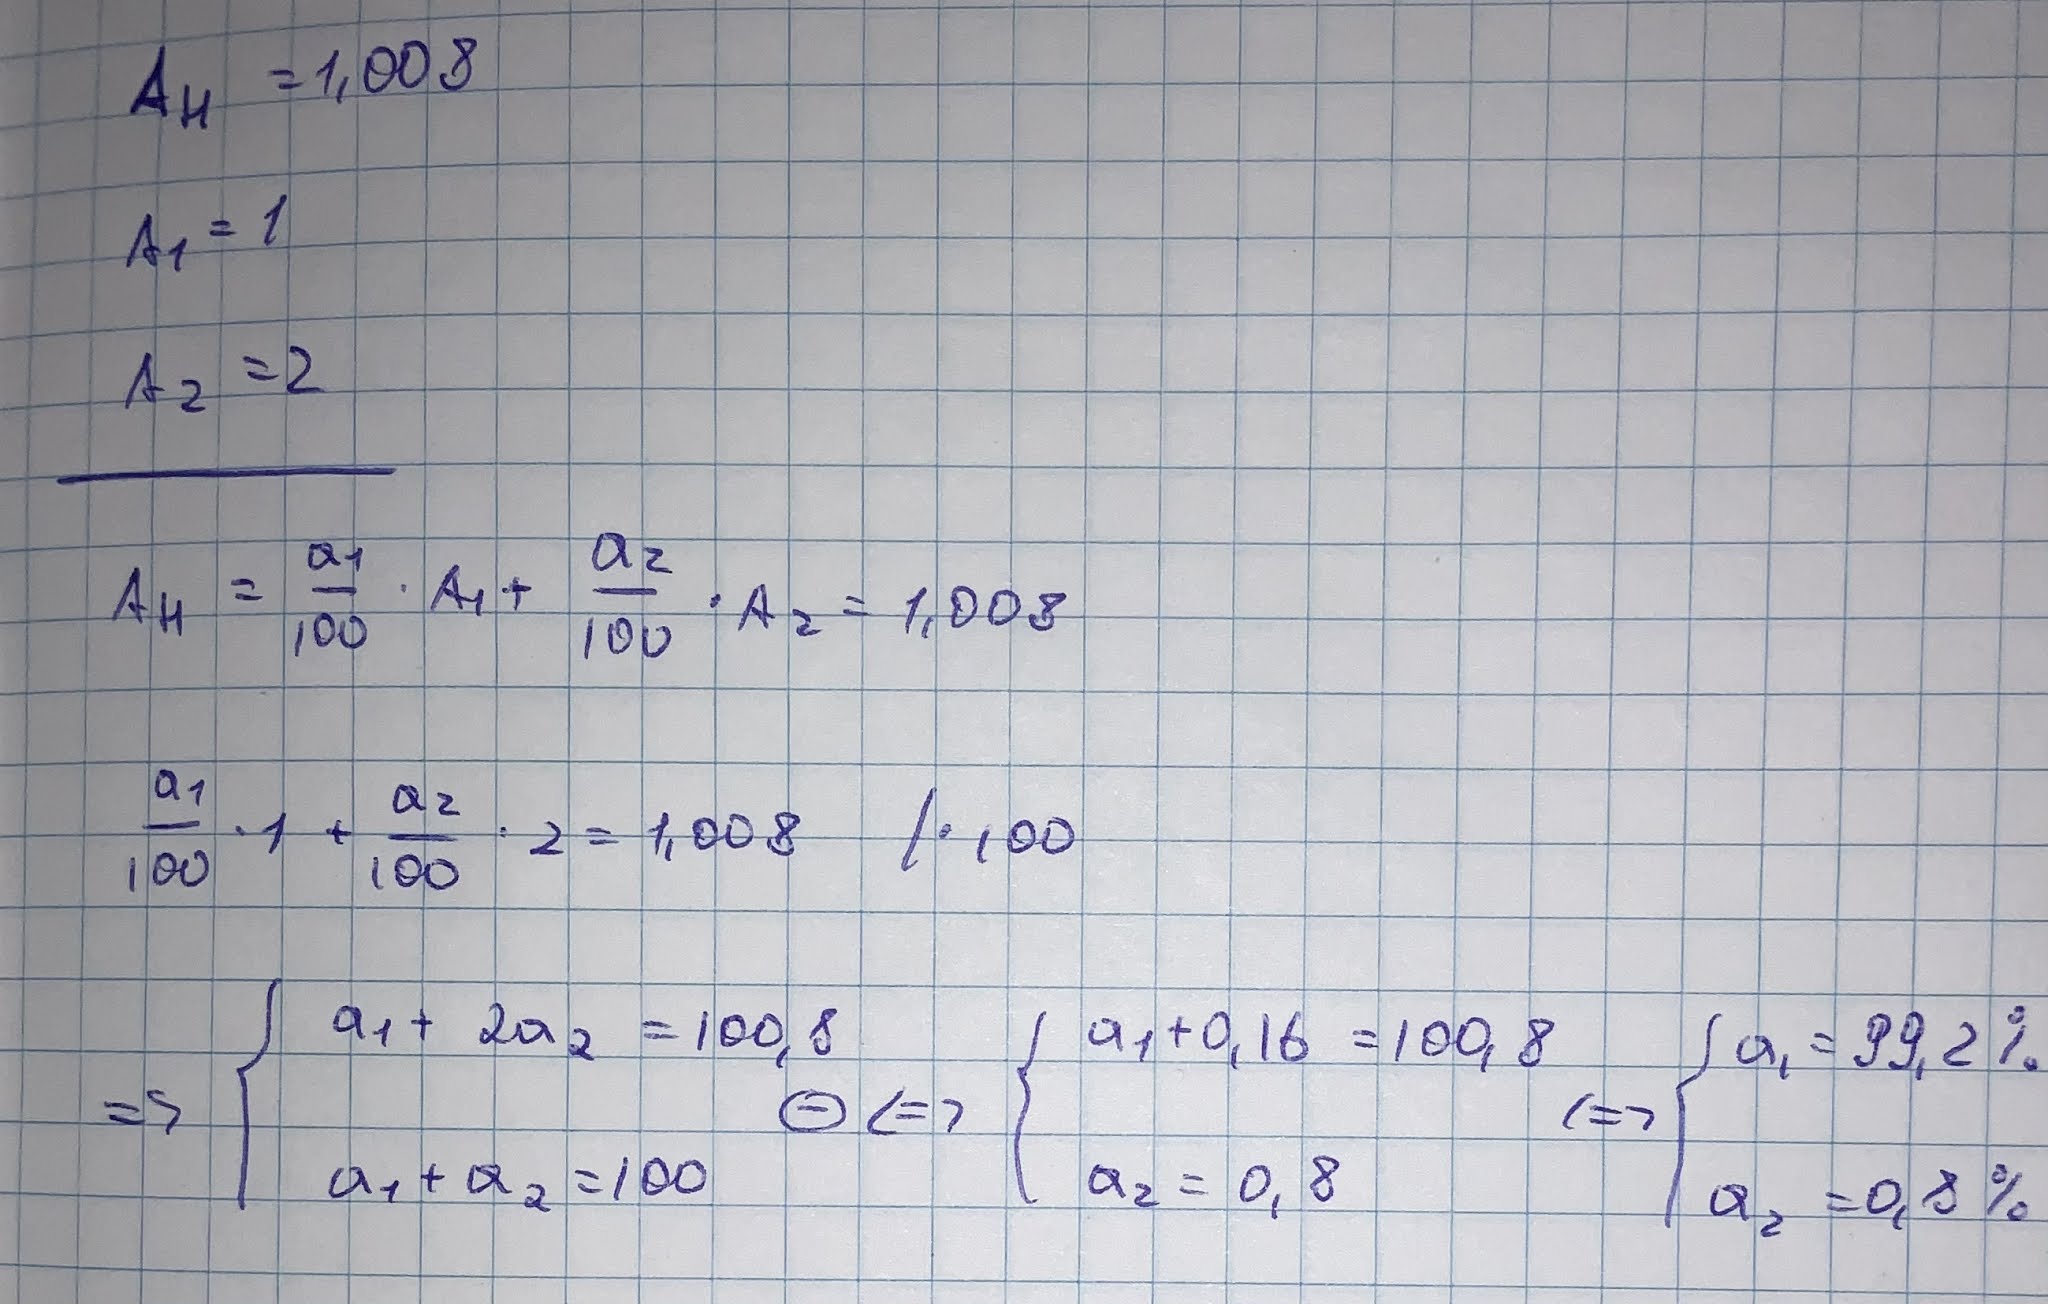 A_H = 1,008
A_1 = 1
A_2 = 2
A_H = a_1/100 · A_1 + a_2/100 · A_2 = 1,008
a_1/100 · 1 + a_2/100 · 2 = 1,008 /· 100
=> { a_1 + 2a_2 = 100,8 ⊖ <=> { a_1 + 0,16 = 100,8 <=> { a_1 = 99,2%
a_1 + a_2 = 100 a_2 = 0,8 a_2 = 0,8%